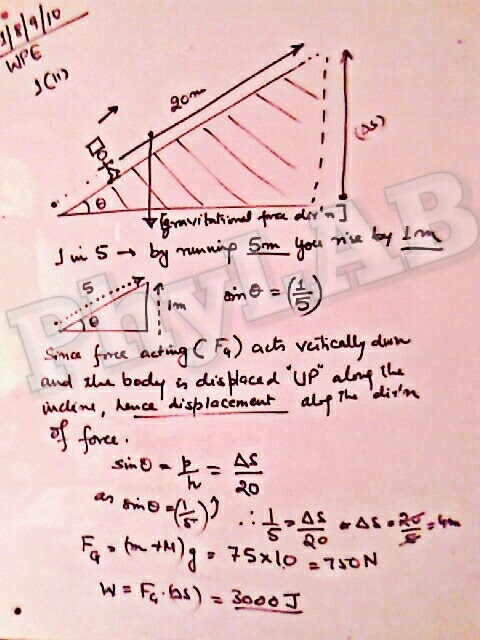 1/8/9/10
WPE
1(11)
20m
(ΔS)
θ
[gravitational force dir'n]
1 in 5 → by running 5m you rise by 1m
5
1m
θ
sinθ = (1/5)
PhyLAB
Since force acting (FG) acts vertically down
and the body is displaced "UP" along the
incline, hence displacement along the dir'n
of force.
sinθ = p/h = ΔS/20
as sinθ = (1/5) ∴ 1/5 = ΔS/20 or ΔS = 20/5 = 4m
FG = (m+M)g = 75×10 = 750N
W = FG·(ΔS) = 3000 J